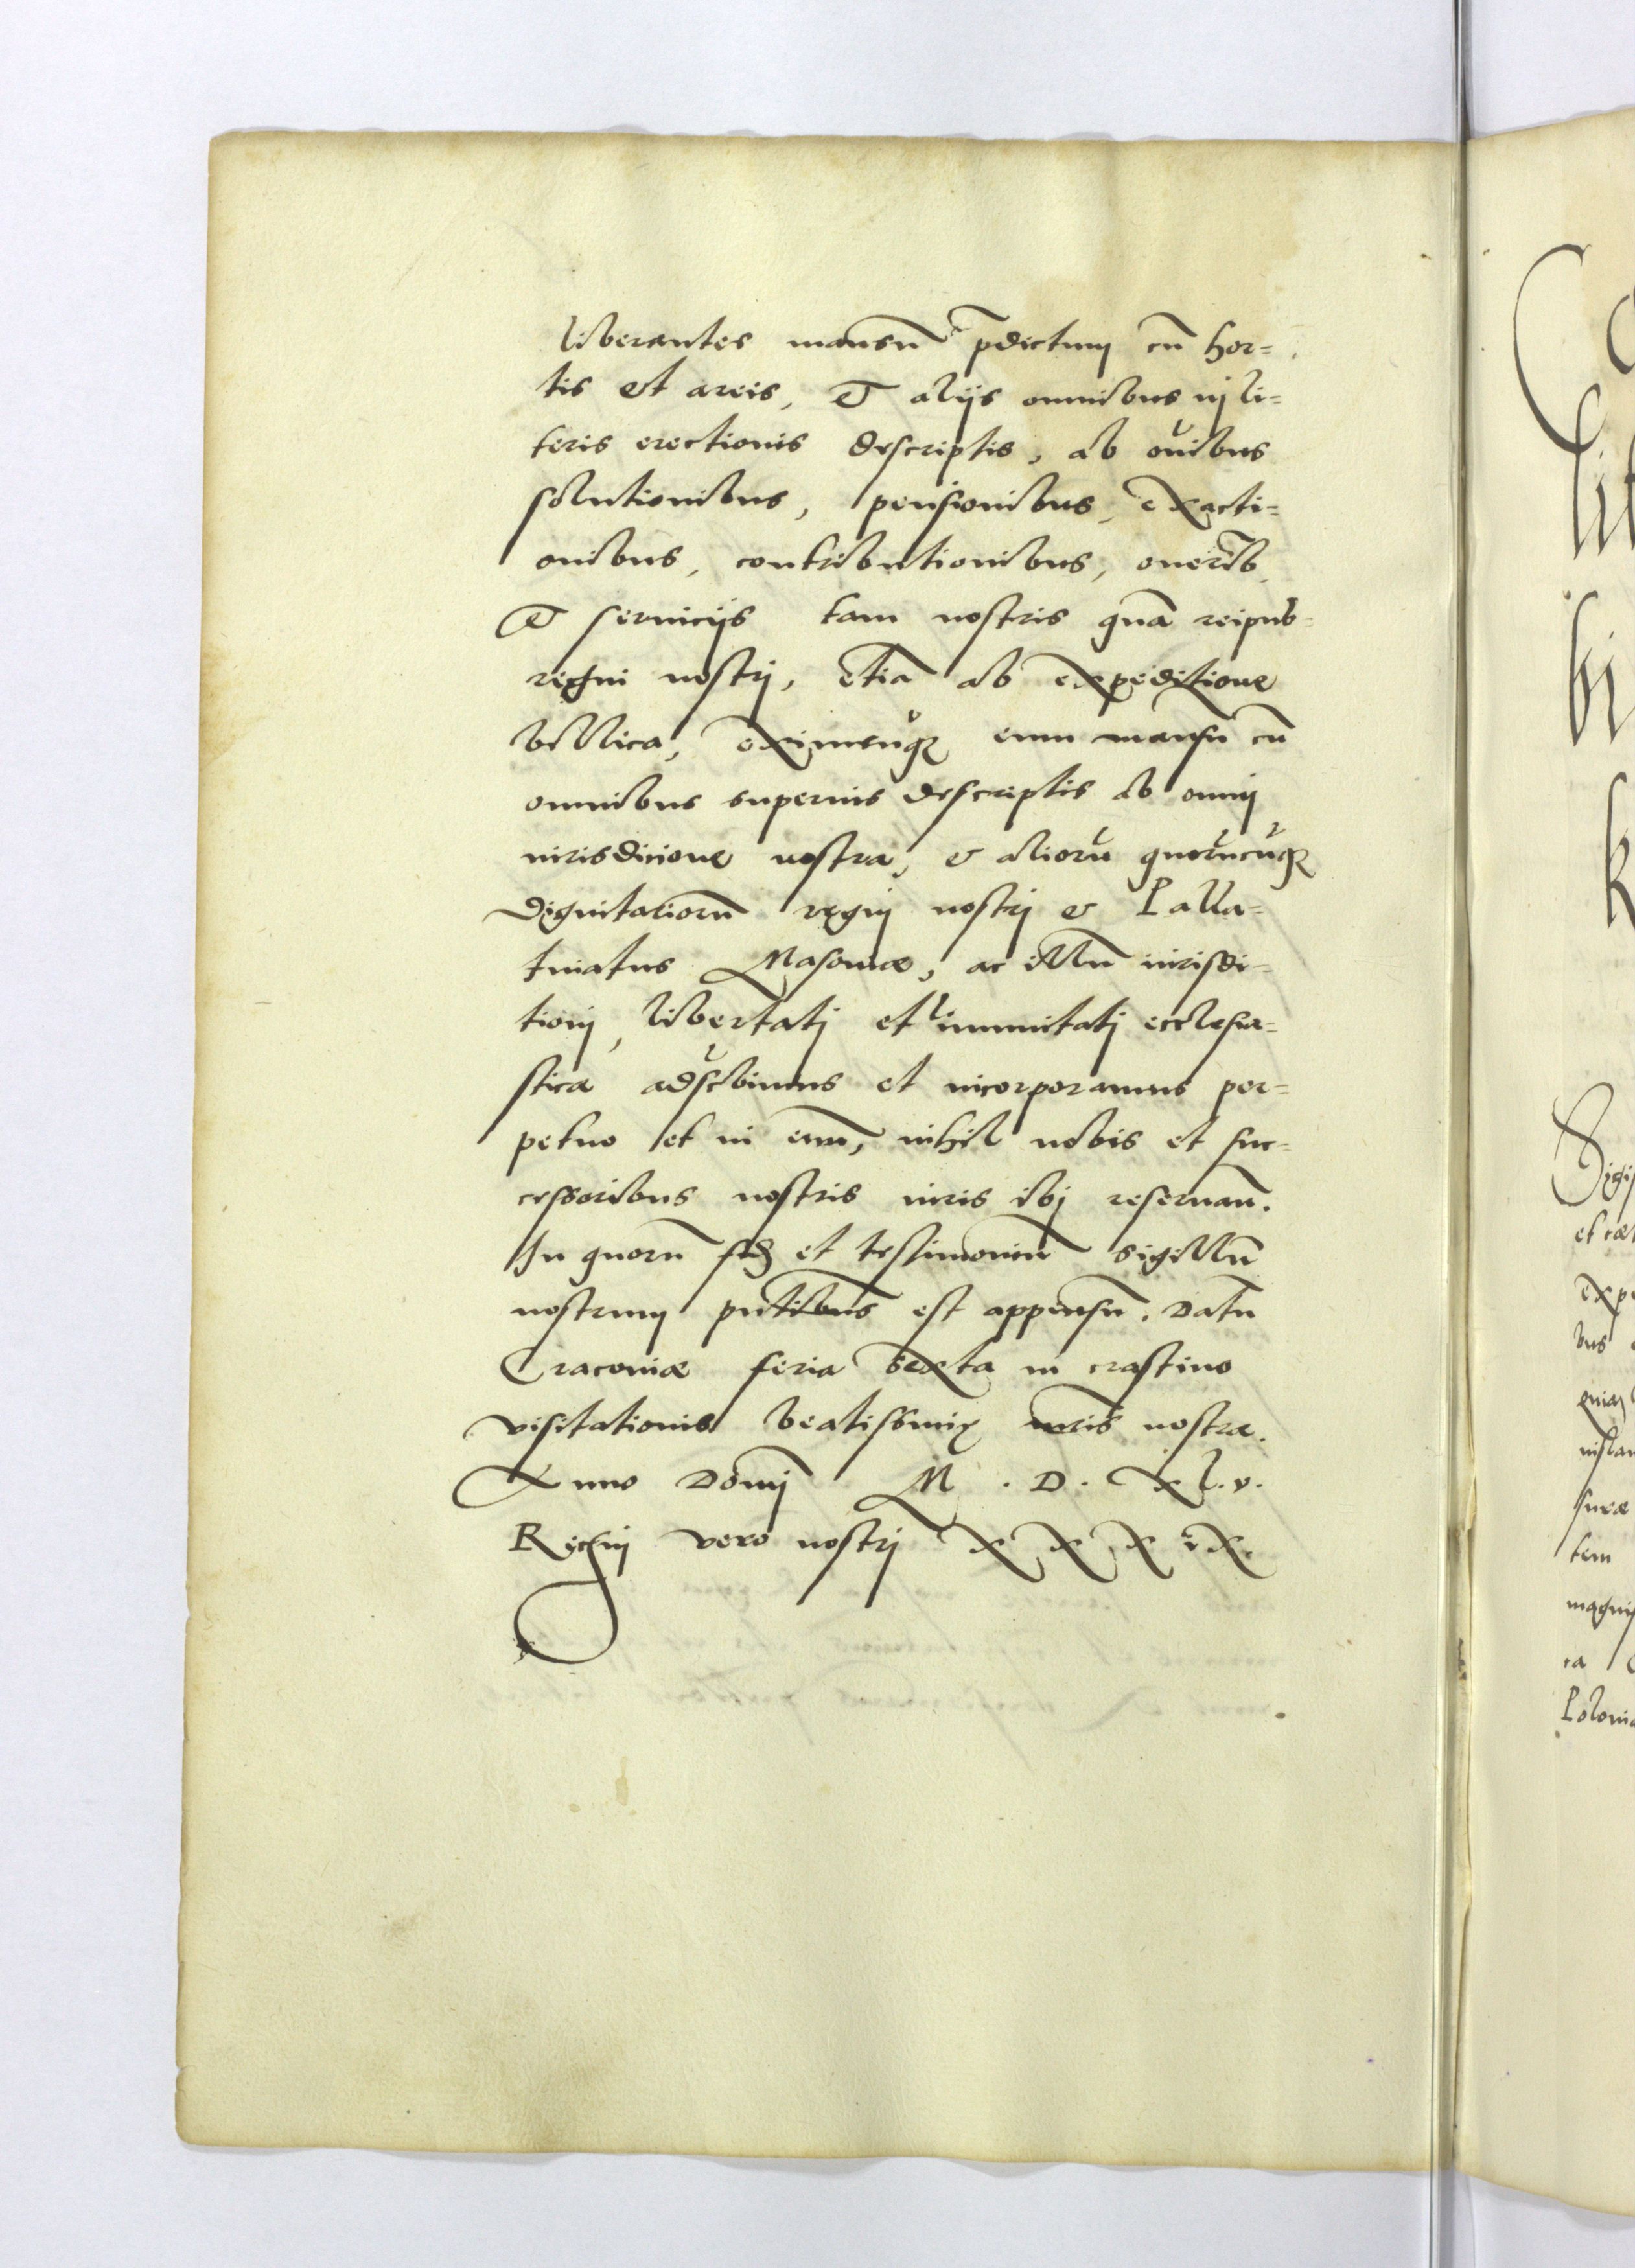 liberantes mansũ p̃dictum cũ hor=
tis et areis, et alijs omnibus in li=
teris erectionis descriptis, ab oĩbus
solutionibus, pensionibus, exacti=
onibus, contributionibus, oneribꝰ
et seruicijs tam nostris quã reipub=
regni nostri, etiã ab expeditione
bellica, eximimusqꝫ eum mansũ cũ
omnibus superius descriptis ab omni
iurisdicione nostra, & aliorũ quorũcũqꝫ
dignitariorũ regni nostri & Palla=
tinatus Masouiæ, ac illũ iurisdi=
tioni, libertati et immunitati ecclesia=
sticæ adscͥbimus et incorporamus per=
petuo et in eũm, nihil nobis et suc=
cessoribus nostris iuris ibi reseruañ.
In quorũ fidẽ et testimoniũ sigillũ
nostrum pñtibus est appensũ. Datũ
Cracouiæ feria sexta in crastino
visitationis beatissimę mr̃is nostræ.
Anno Domĩ M. D. xl.v.
Regni vero nostri XXXIX.
Sigis
et cæt
expe
bus
tem
magnif
ra
Polonia